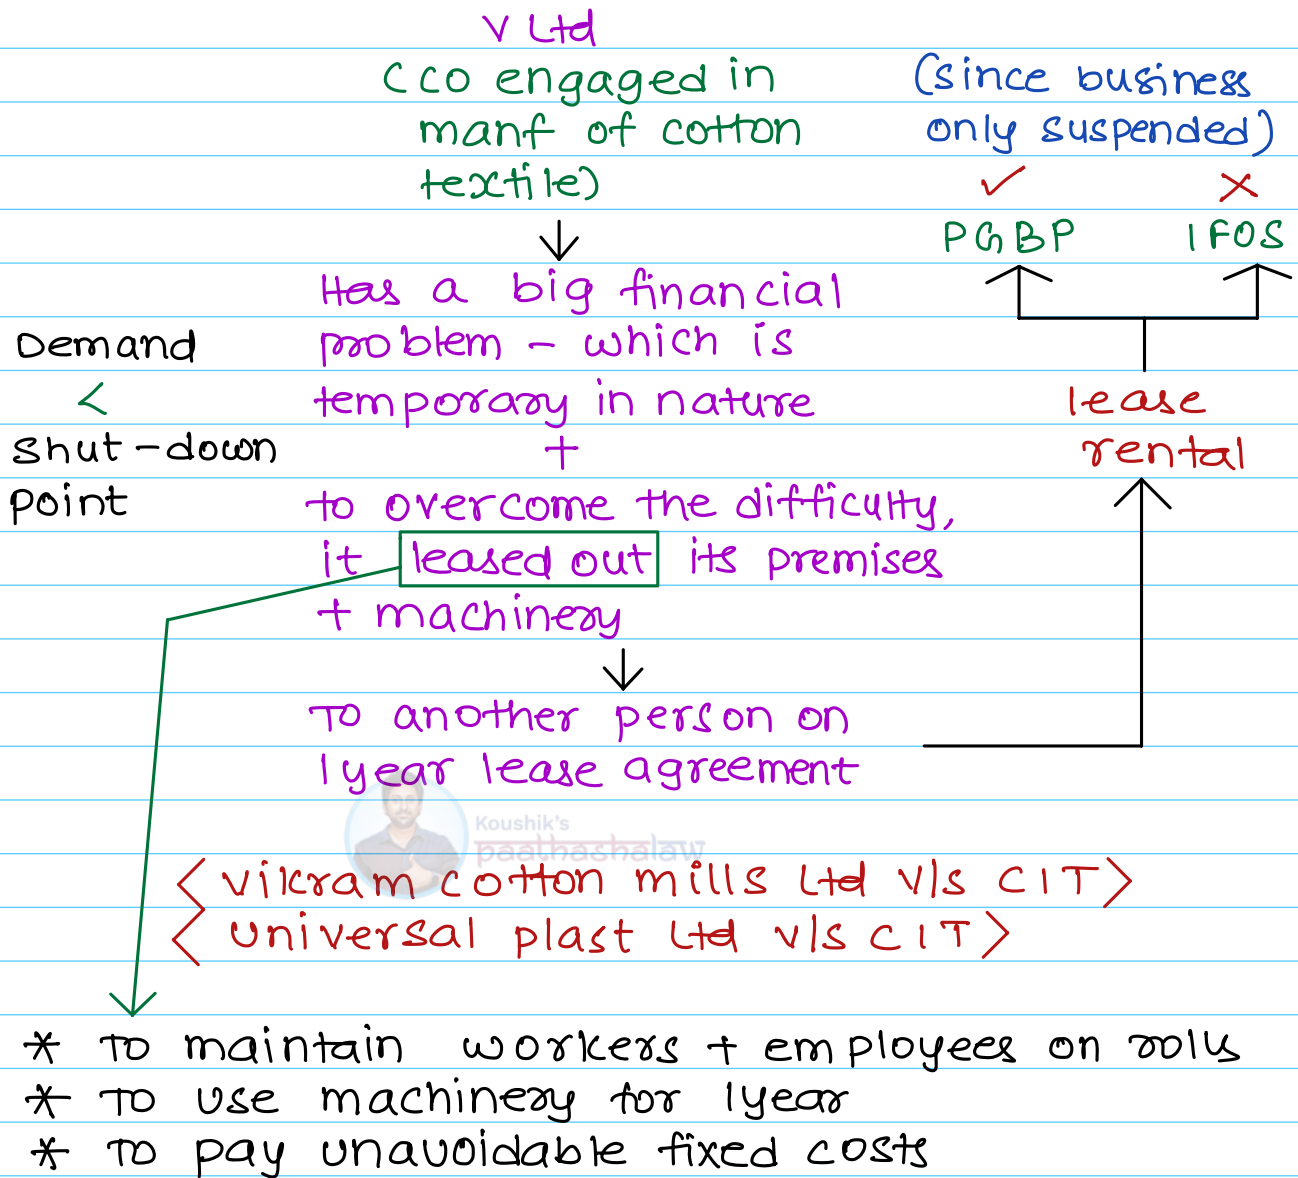 V Ltd
(co engaged in
manf of cotton
textile)
(since business
only suspended)
✓ ×
PGBP IFOS
Has a big financial
problem - which is
temporary in nature
+
to overcome the difficulty,
it leased out its premises
+ machinery
Demand
<
Shut-down
Point
lease
rental
To another person on
1year lease agreement
Koushik's
paathashalaw
<Vikram cotton mills Ltd V/s CIT>
<Universal plast Ltd V/s CIT>
* To maintain workers + employees on rolls
* To use machinery for 1year
* To pay unavoidable fixed costs